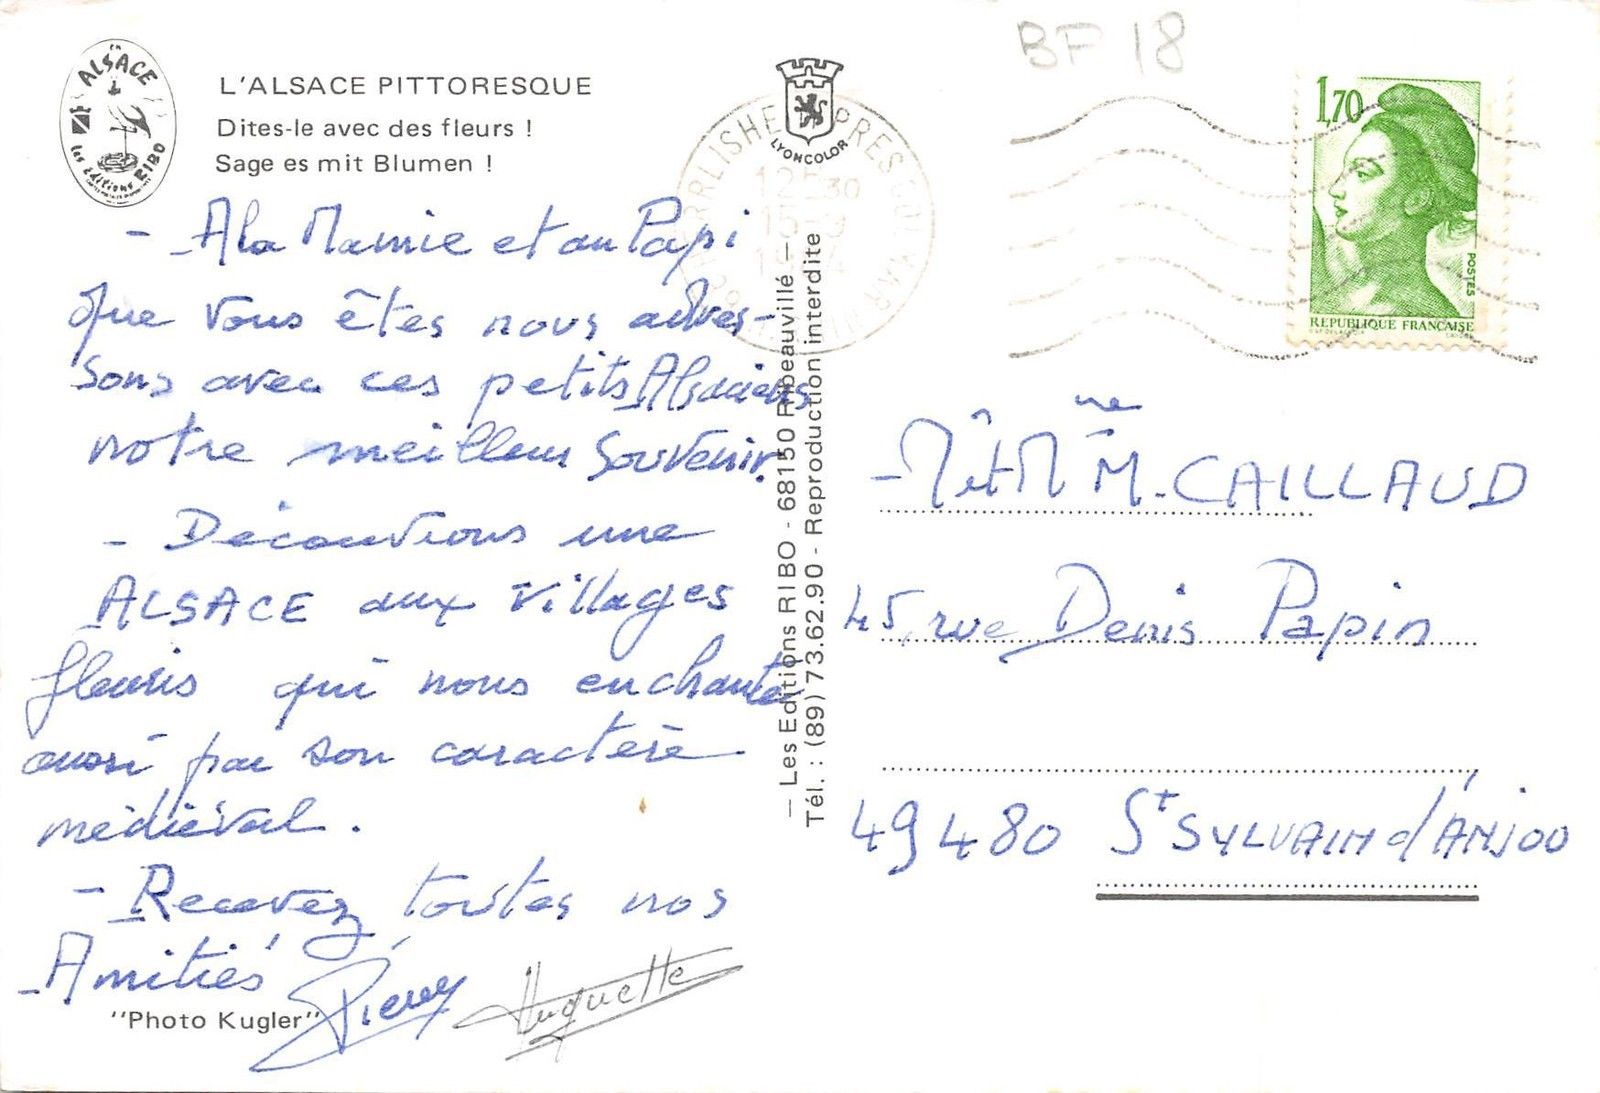 BF 18
en
ALSACE
les éditions RIBO
L'ALSACE PITTORESQUE
Dites-le avec des fleurs !
Sage es mit Blumen !
LYONCOLOR
12H30
1,70
POSTES
REPUBLIQUE FRANÇAISE
- A la Mamie et au Papi
que vous êtes nous adres-
sons avec ces petits Alsaciens
notre meilleur souvenir.
- Découvrons une
ALSACE aux villages
fleuris qui nous enchante
aussi par son caractère
médiéval.
- Recevez toutes nos
Amitiés
Pierre Huguette
"Photo Kugler"
— Les Editions RIBO - 68150 Ribeauvillé —
Tél. : (89) 73.62.90 - Reproduction interdite
- Mr et Mme M. CAILLAUD
45, rue Denis Papin
49480 St SYLVAIN d'ANJOU